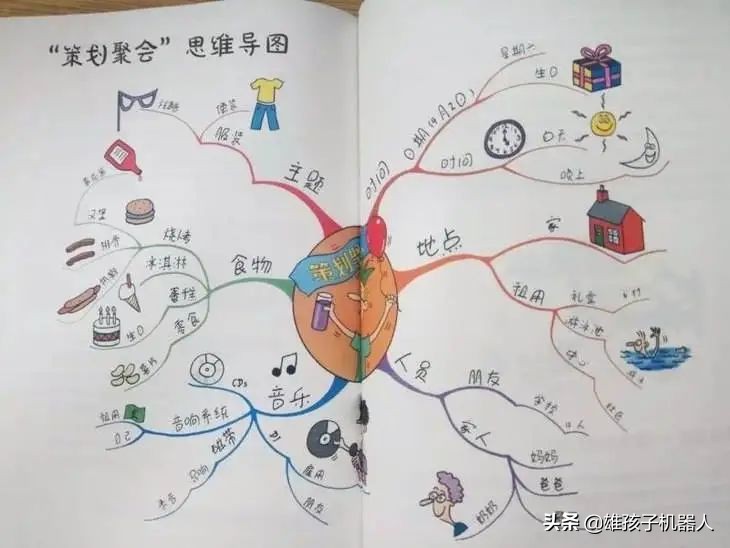 “策划聚会”思维导图
便装
服装
主题
汉堡
排骨
烧烤
冰淇淋
食物
蛋糕
生日
零食
薯片
CDs
音乐
租用
自己
音响系统
磁带
DJ
雇用
朋友
策划聚
时间
日期(9月20)
星期六
生日
时间
白天
晚上
地点
家
租用
礼堂
游泳池
中心
社区
人员
朋友
学校
家人
妈妈
爸爸
奶奶
头条 @雄孩子机器人